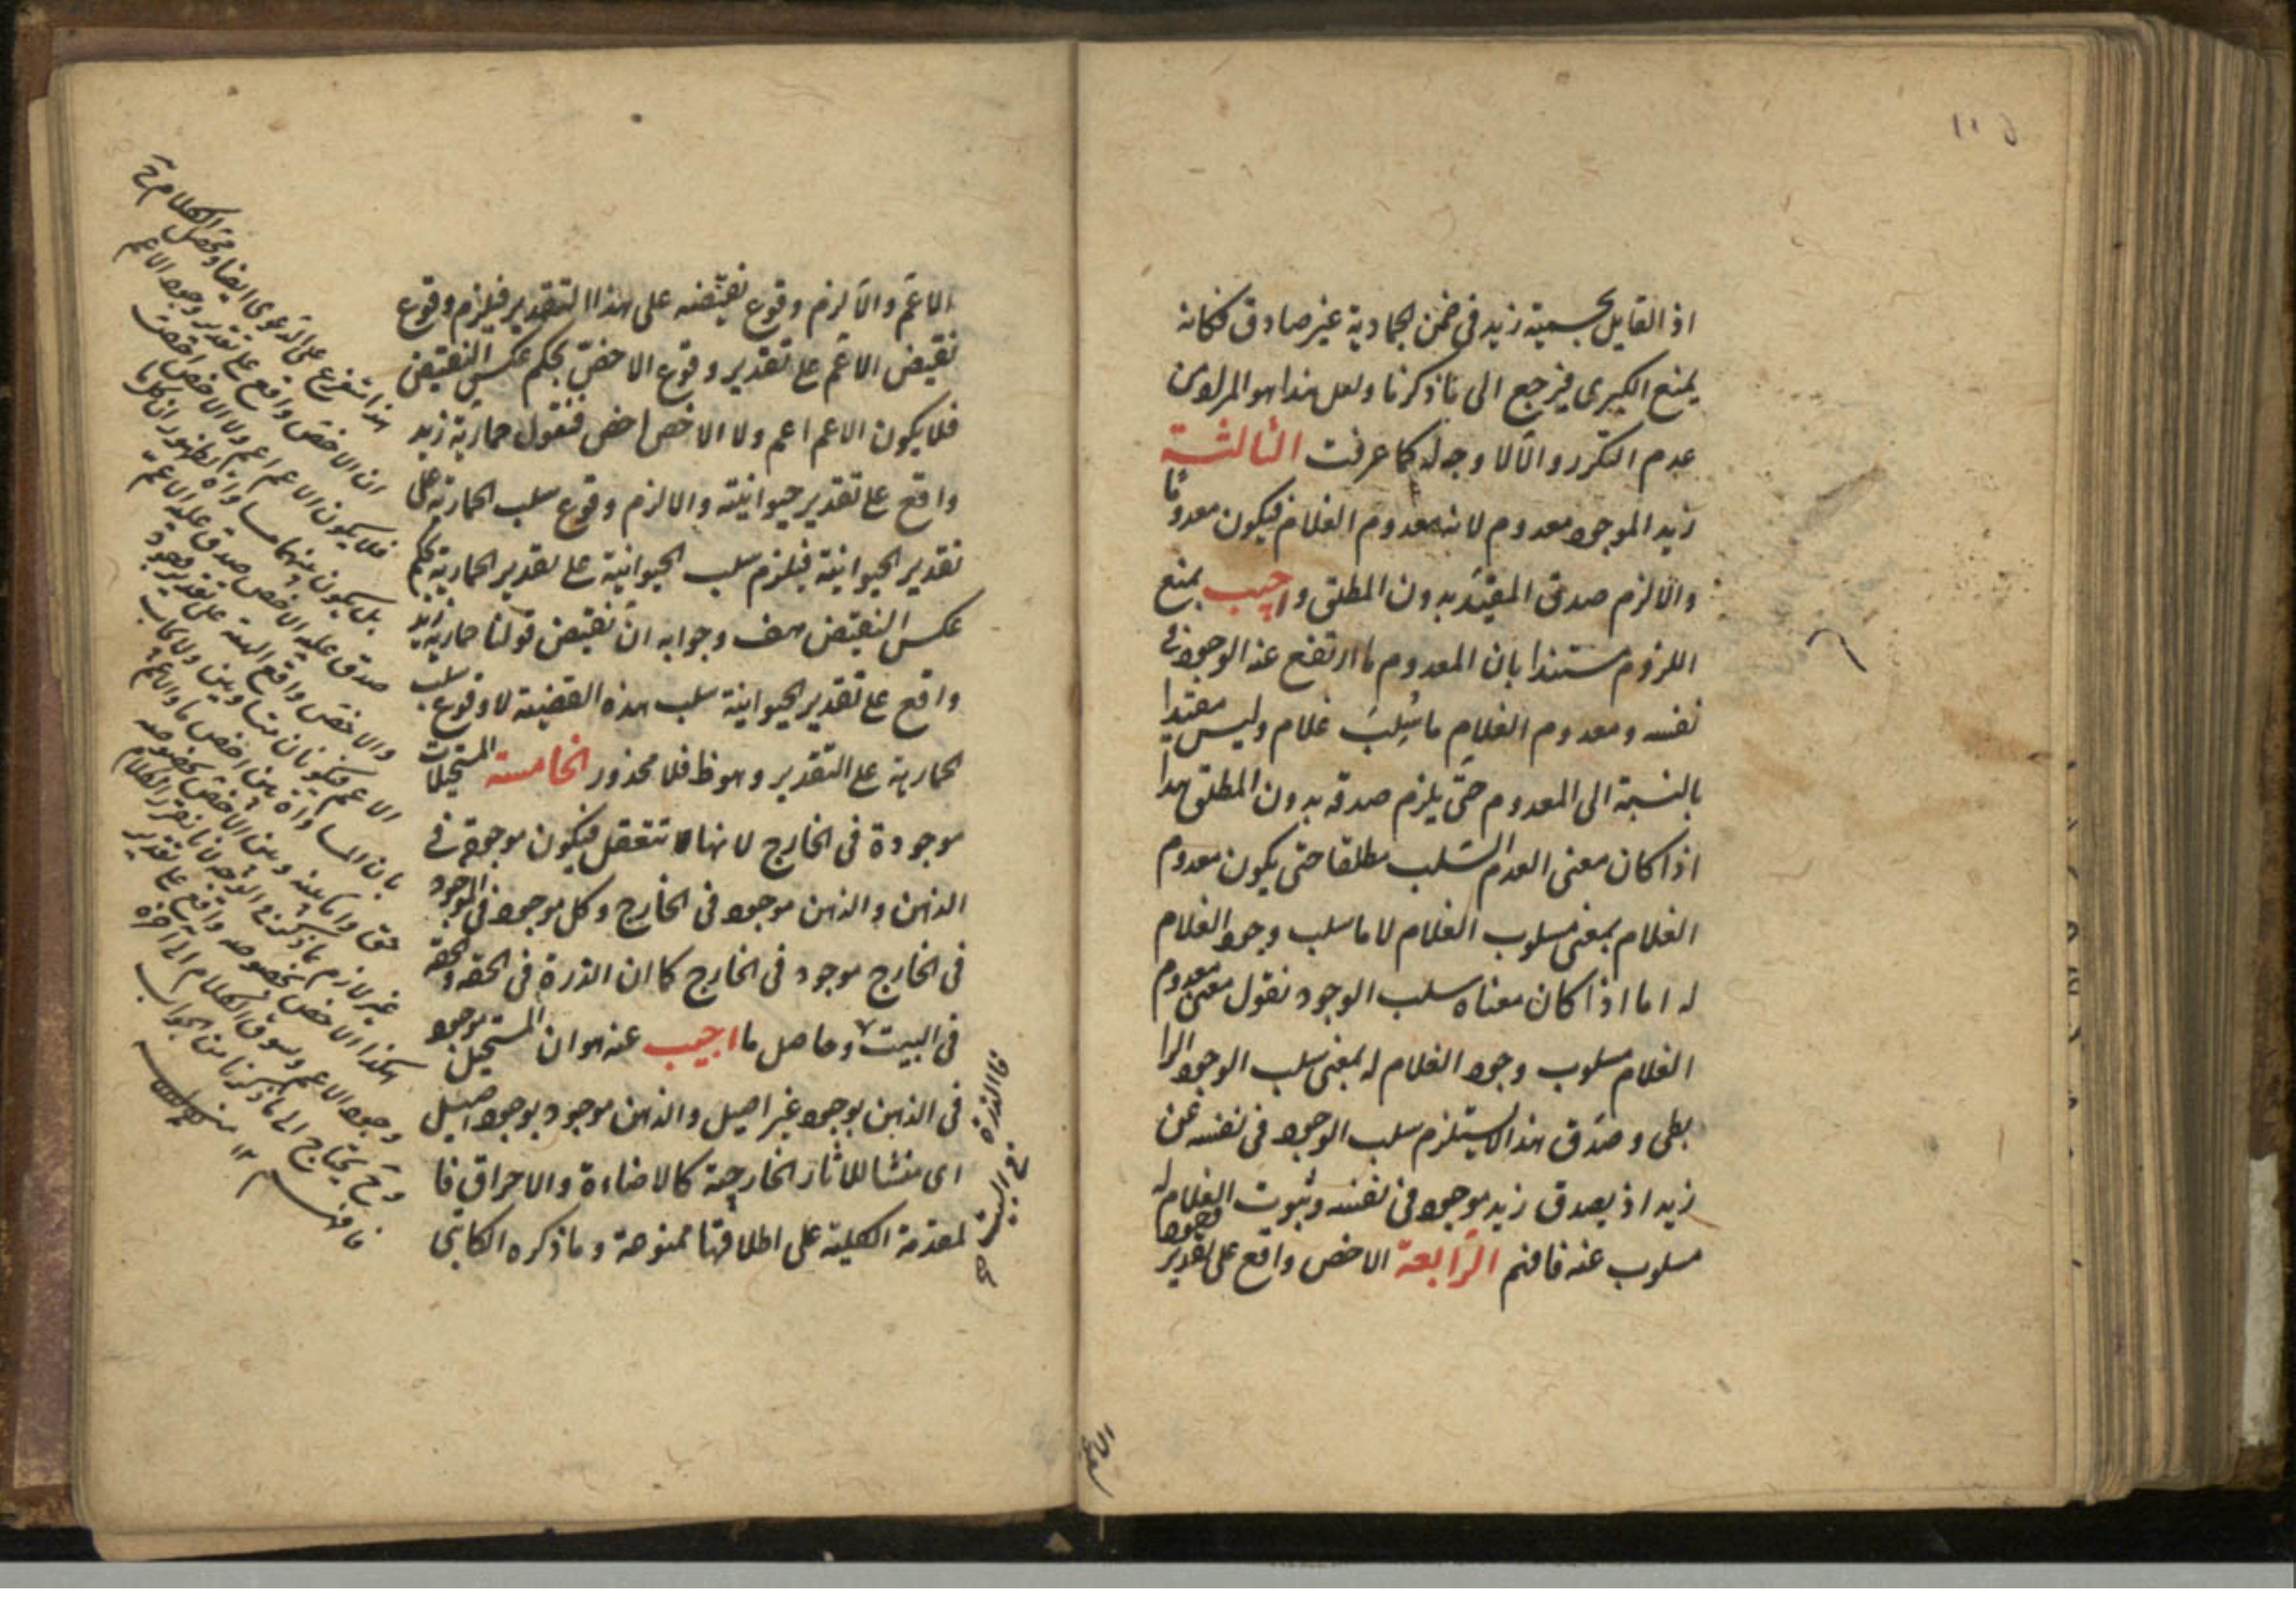 اذ القايل بجسمية زيد فى ضمن الجمادية غير صادق فكانه
يمنع الكبرى فيرجع الى ما ذكرنا ولعل هذا هو المراد من
عدم التكرر والا لا وجه له كما عرفت الثالثة
زيد الموجود معدوم لانه معدوم الغلام فيكون معدوما
والا لزم صدق المقيد بدون المطلق واجيب بمنع
اللزوم مستندا بان المعدوم ما ارتفع عنه الوجود فى
نفسه ومعدوم الغلام ما سُلِبَ غلام وليس مقيدا
بالنسبة الى المعدوم حتى يلزم صدقه بدون المطلق هذا
اذا كان معنى العدم السلب مطلقا حتى يكون معدوم
الغلام بمعنى مسلوب الغلام لا ما سلب وجود الغلام
له اما اذا كان معناه سلب الوجود نقول معنى معدوم
الغلام مسلوب وجود الغلام له بمعنى سلب الوجود الرا
بطى وصدق هذا لا يستلزم سلب الوجود فى نفسه عن
زيد اذ يصدق زيد موجود فى نفسه وثبوت الغلام له
مسلوب عنه فافهم الرابعة الاخص واقع على تقدير وجود
الاعم
الاعم والا لزم وقوع نقيضه على هذا التقدير فيلزم وقوع
نقيض الاعم على تقدير وقوع الاخص بحكم عكس النقيض
فلا يكون الاعم اعم ولا الاخص اخص فنقول حمارية زيد
واقع على تقدير حيوانيته والا لزم وقوع سلب الحمارية على
تقدير الحيوانية فيلزم سلب الحيوانية على تقدير الحمارية بحكم
عكس النقيض هف وجوابه ان نقيض قولنا حمارية زيد
واقع على تقدير الحيوانية سلب هذه القضية لا وقوع سلب
الحمارية على التقدير وهو ظ فلا محذور الخامسة المستحيلات
موجودة فى الخارج لانها تتعقل فيكون موجودة فى
الذهن والذهن موجود فى الخارج وكل موجود فى الموجود
فى الخارج موجود فى الخارج كما ان الدرة فى الحقة والحقة
فى البيت وحاصل ما اجيب عنه هو ان المستحيل موجود
فى الذهن بوجود غير اصيل والذهن موجود بوجود اصيل
اى منشا للاثار الخارجية كالاضاءة والاحراق فا
لمقدمة الكلية على اطلاقها ممنوعة وما ذكره الكاتبى
فالدرة فى البيت
هذا تنفرع على الدعوى ايضا ومحصل الكلام ح
ان الاخص واقع على تقدير وجود الاعم
فلا يكون الاعم اعم ولا الاخص اخص
بل يكون بينهما مساواة لظهور ان كل ما
صدق عليه الاخص صدق عليه الاعم
والاخص واقع البتة على تقدير وجود
الاعم فيكونان متساويين ولا يجاب
بان المساواة بين اخص ما والاعم
حق واما بينه وبين الاخص بخصوصه
غير لازم لانا نقرر الكلام
هكذا الاخص بخصوصه واقع على تقدير
وجود الاعم ونسوق الكلام الى آخره
وح يحتاج الى ما ذكرنا من الجواب
فافهم ١٢ منه